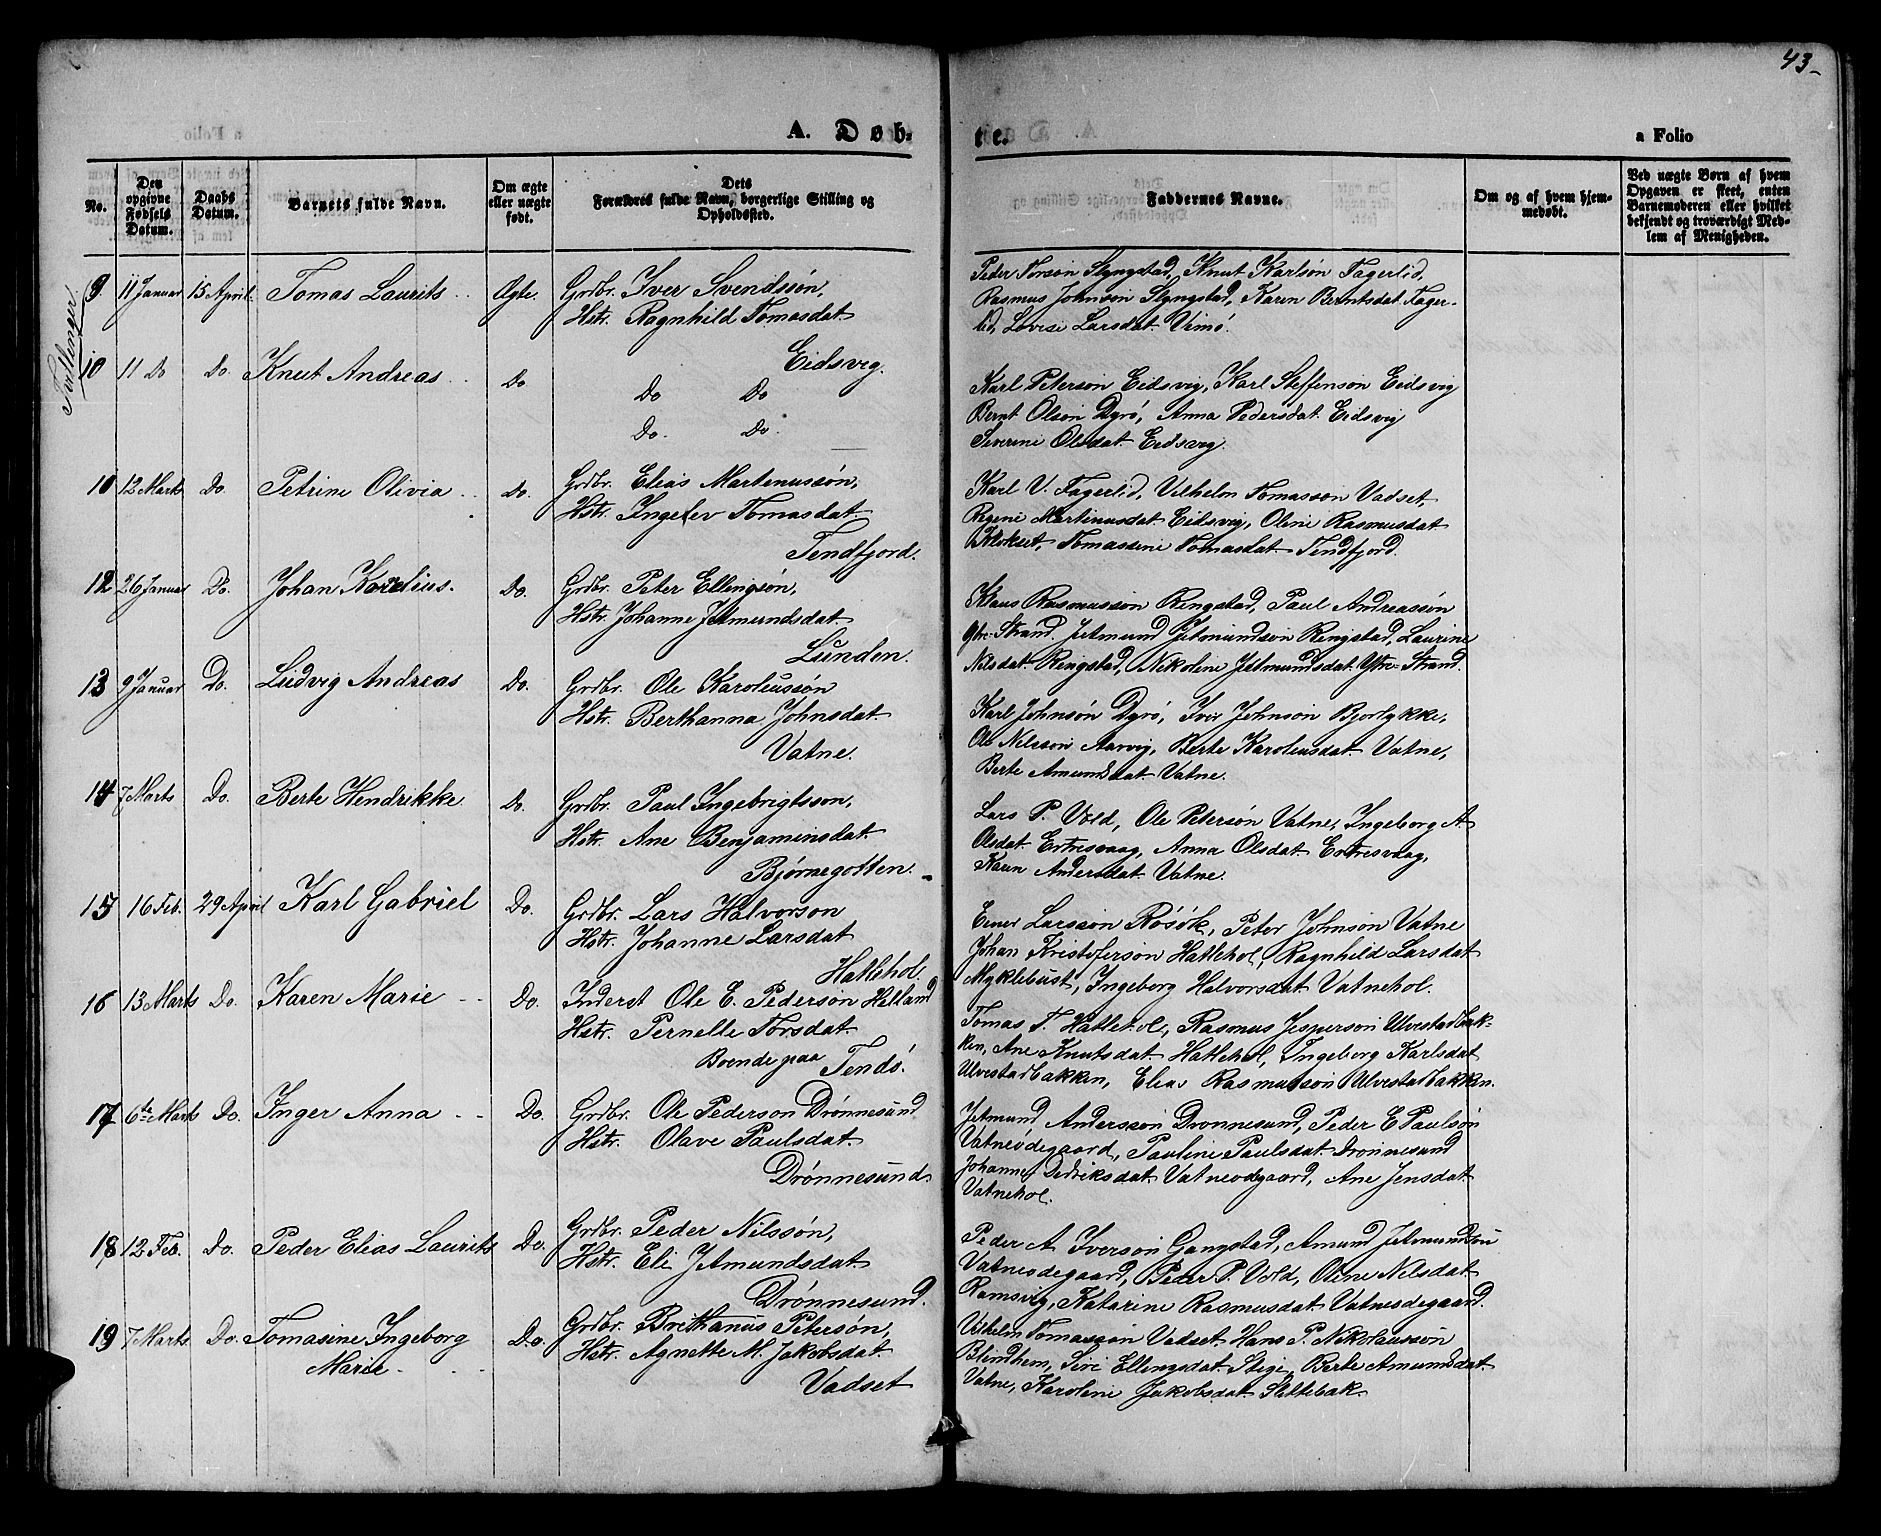 43
A. Døb-
te.
a Folio
No.
Den opgivne Fødsels Datum.
Daabs Datum.
Barnets fulde Navn.
Om ægte eller uægte født.
Dets Forældres fulde Navn, borgerlige Stilling og Opholdssted.
Faddernes Navne.
Om og af hvem hjemmedøbt.
Ved uægte Børn af hvem Opgaven er skeet, enten Barnemoderen eller hvilket bekjendt og troværdigt Medlem af Menigheden.
Tvillinger.
9. 11 Januar 15 April. Tomas Laurits Ægte. Grdbr. Iver Svendssøn,
Hstr. Ragnhild Tomasdat.
Eidsvig.
Peder Torson Slyngstad, Knut Karlsøn Fagerlid,
Rasmus Johnson Slyngstad, Karen Berntsdat. Fager-
lid, Lovise Larsdat. Vimø.
10 11 Do Do. Knut Andreas Do
Do Do
Do. Do.
Karl Peterson Eidsvig, Karl Steffenson Eidsvig
Bernt Olsen Dyrø, Anna Pedersdat. Eidsvig
Severine Olsdat. Eidsvig.
10 12 Marts Do. Petrine Olivia Do. Grdbr. Elias Martinussøn,
Hstr. Ingelev Tomasdat.
Tendfjord.
Karl V. Fagerlid, Vilhelm Tomasson Vadset,
Regine Martinusdat Eidsvig, Oline Rasmusdat
Klokset, Tomassine Tomasdat. Tendfjord.
12 26 Januar Do. Johan Kornelius. Do. Grdbr. Peter Ellingsøn,
Hstr. Johanne Jetmundsdat
Lunden.
Klaus Rasmusson Ringstad, Paul Andreassøn
Ytre-Strand. Jetmund Jetmundsøn Ringstad, Laurine
Nilsdat. Ringstad, Nikoline Jetmundsdat. Ytre-Strand.
13 9 Januar Do. Ludvig Andreas Do. Grdbr. Ole Karoliussøn
Hstr. Berthanna Johnsdat.
Vatne.
Karl Johnsøn Dyrø, Iver Johnson Bjorlykke,
Ole Nilsson Aarvig, Berte Karoliusdat. Vatne,
Berte Amundsdat. Vatne.
14 7 Marts Do. Berte Hendrikke Do. Grdbr. Paul Ingebrigtsson,
Hstr. Ane Benjaminsdat.
Bjørnegotten.
Lars P. Vold, Ole Petersøn Vatne, Ingeborg A
Olsdat. Ertresvaag, Anna Olsdat. Ertresvaag,
Karen Andersdat. Vatne.
15 16 Feb. 29 April Karl Gabriel Do. Grdbr. Lars Halvorson
Hstr. Johanne Larsdat
Hatlehol.
Einer Larsson Røsøk, Peter Johnson Vatne
Johan Kristoferson Hatlehol, Ragnhild Larsdat
Myklebust, Ingeborg Halvorsdat. Vatnehol.
16 13 Marts Do. Karen Marie Do. Inderst Ole E. Pederson Helland
Hstr. Pernelle Torsdat.
Boende paa Tendø.
Tomas T. Hatlehol, Rasmus Jesperson Ulvestadbak-
ken, Ane Knutsdat. Hatlehol, Ingeborg Karlsdat
Ulvestadbakken, Elias Rasmusson Ulvestadbakken.
17 6te Marts Do. Inger Anna Do. Grdbr. Ole Pederson Drønnesund
Hstr. Olave Paulsdat.
Drønnesund
Jetmund Anderssøn Dronnesund, Peder E Paulsøn
Vatneødegaard, Pauline Paulsdat. Dronnesund
Johanne Didriksdat. Vatneødegaard, Ane Jensdat
Vatnehol.
18 12 Feb. Do. Peder Elias Laurits Do. Grdbr. Peder Nilssøn,
Hstr. Eli Jetmundsdat.
Drønnesund.
Peder A Iverson Gangstad, Amund Jetmundsøn
Vatneodegaard, Peder P. Vold, Oline Nilsdat.
Ramsvig, Katarine Rasmusdat. Vatneodegaard.
19 7 Marts Do. Tomasine Ingeborg
Marie
Do. Grdbr. Brithanus Petersøn,
Hstr. Agnette M. Jakobsdat.
Vadset
Vilhelm Tomassøn Vadset, Hans P. Nikolaussøn
Blindhem, Sivi Ellingsdat. Stege, Berte Amundsdat.
Vatne, Karoline Jakobsdat. Slettebak.